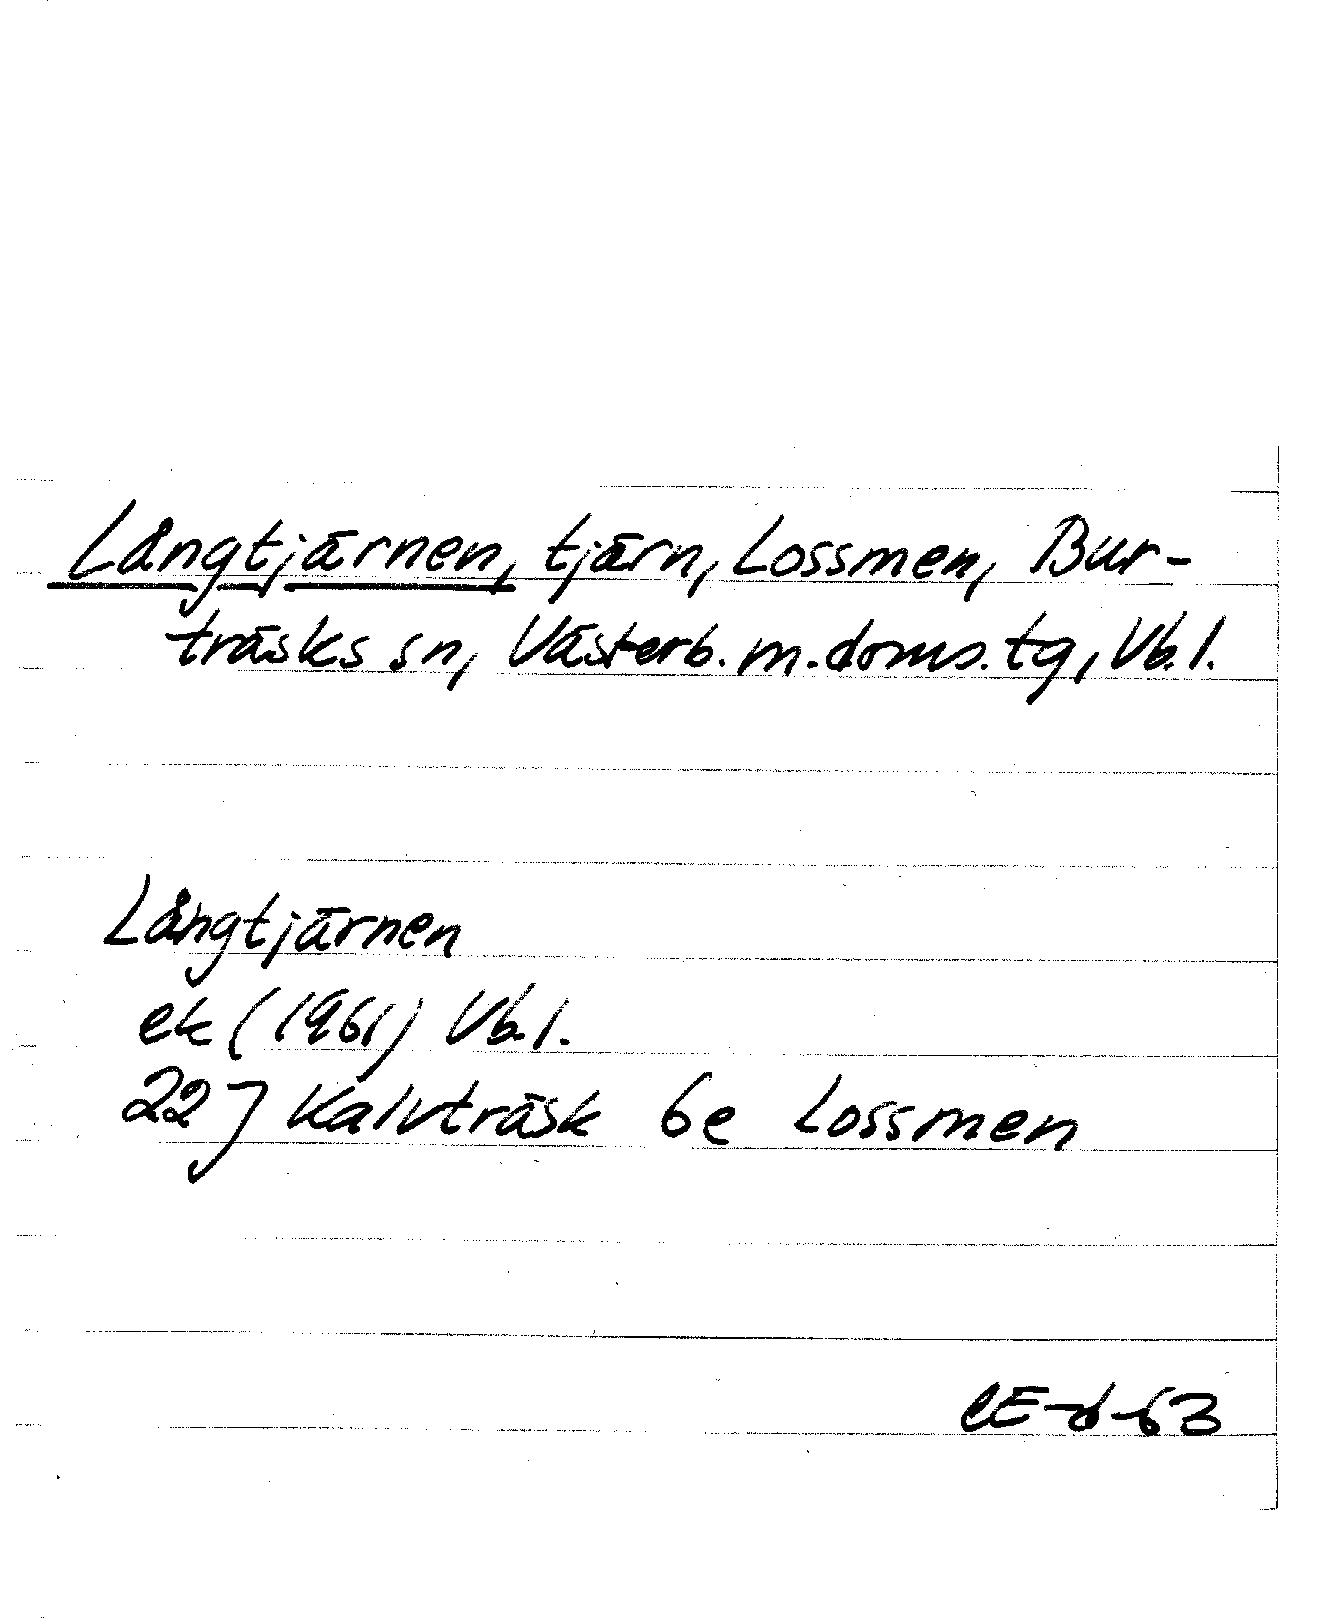 Långtjärnen, tjärn, Lossmen, Bur-
träsks sn, Västerb. m. doms. tg, Vb. l.
Långtjärnen
ek (1961) Vb. l.
22 J Kalvträsk 6e Lossmen